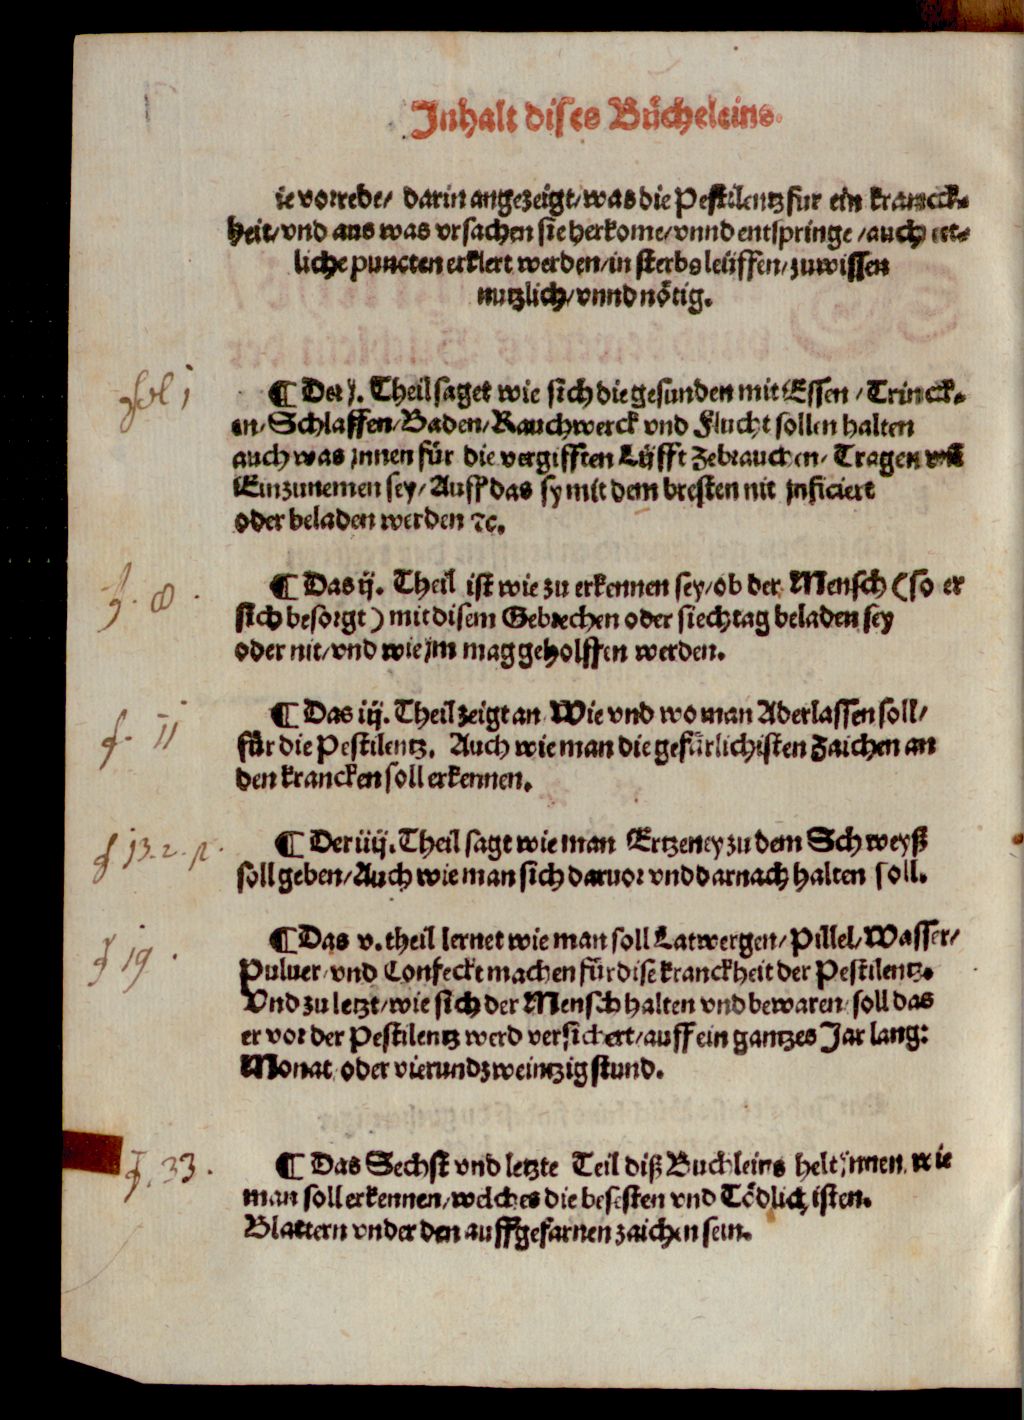 Inhalt dises Bücheleins.
ie vorrede/ darin angezeigt/was die Pestilentz fur ein kranck-
heit/vnd aus was vrsachen sie herkome/vnnd entspringe/auch et-
liche puncten erklert werden/in sterbsleüffen/zuwissen
nutzlich/vnnd nötig.
fol j
¶ Der j. Theil saget wie sich die gesunden mit Essen/Trinck-
en/Schlaffen/Baden/Rauchwerck vnd Flucht sollen halten
auch was jnnen für die vergifften Lüfft Zebrauchen/Tragen vnd
Einzunemen sey/Auff das sy mit dem bresten nit jnficiert
oder beladen werden ⁊c.
f. 8.
¶ Das ij. Theil ist wie zu erkennen sey/ob der Mensch (so er
sich besorgt) mit disem Gebrechen oder siechtag beladen sey
oder nit/vnd wie jm mag geholffen werden.
f. 11
¶ Das iij. Theil zeigt an Wie vnd wo man Aderlassen soll/
für die Pestilentz. Auch wie man die gefürlichisten Zaichen an
den krancken soll erkennen.
f 13. 2. p.
¶ Der iiij. Theil sagt wie man Ertzeney zu dem Schweyß
soll geben/Auch wie man sich daruor vnd darnach halten soll.
f 19.
¶ Das v. theil lernet wie man soll Latwergen/Pillel/Wasser/
Puluer/vnd Confeckt machen für dise kranckheit der Pestilentz.
Vnd zu letzt/wie sich der Mensch halten vnd bewaren soll das
er vor der Pestilentz werd versichert/auff ein gantzes Jar lang:
Monat oder vierundzweintzig stund.
f. 33.
¶ Das Sechst vnd letzte Teil diß Buchleins helt jnnen wie
man soll erkennen/welches die besesten vnd Tödlichisten.
Blattern vnder den auffgefarnen zaichen sein.